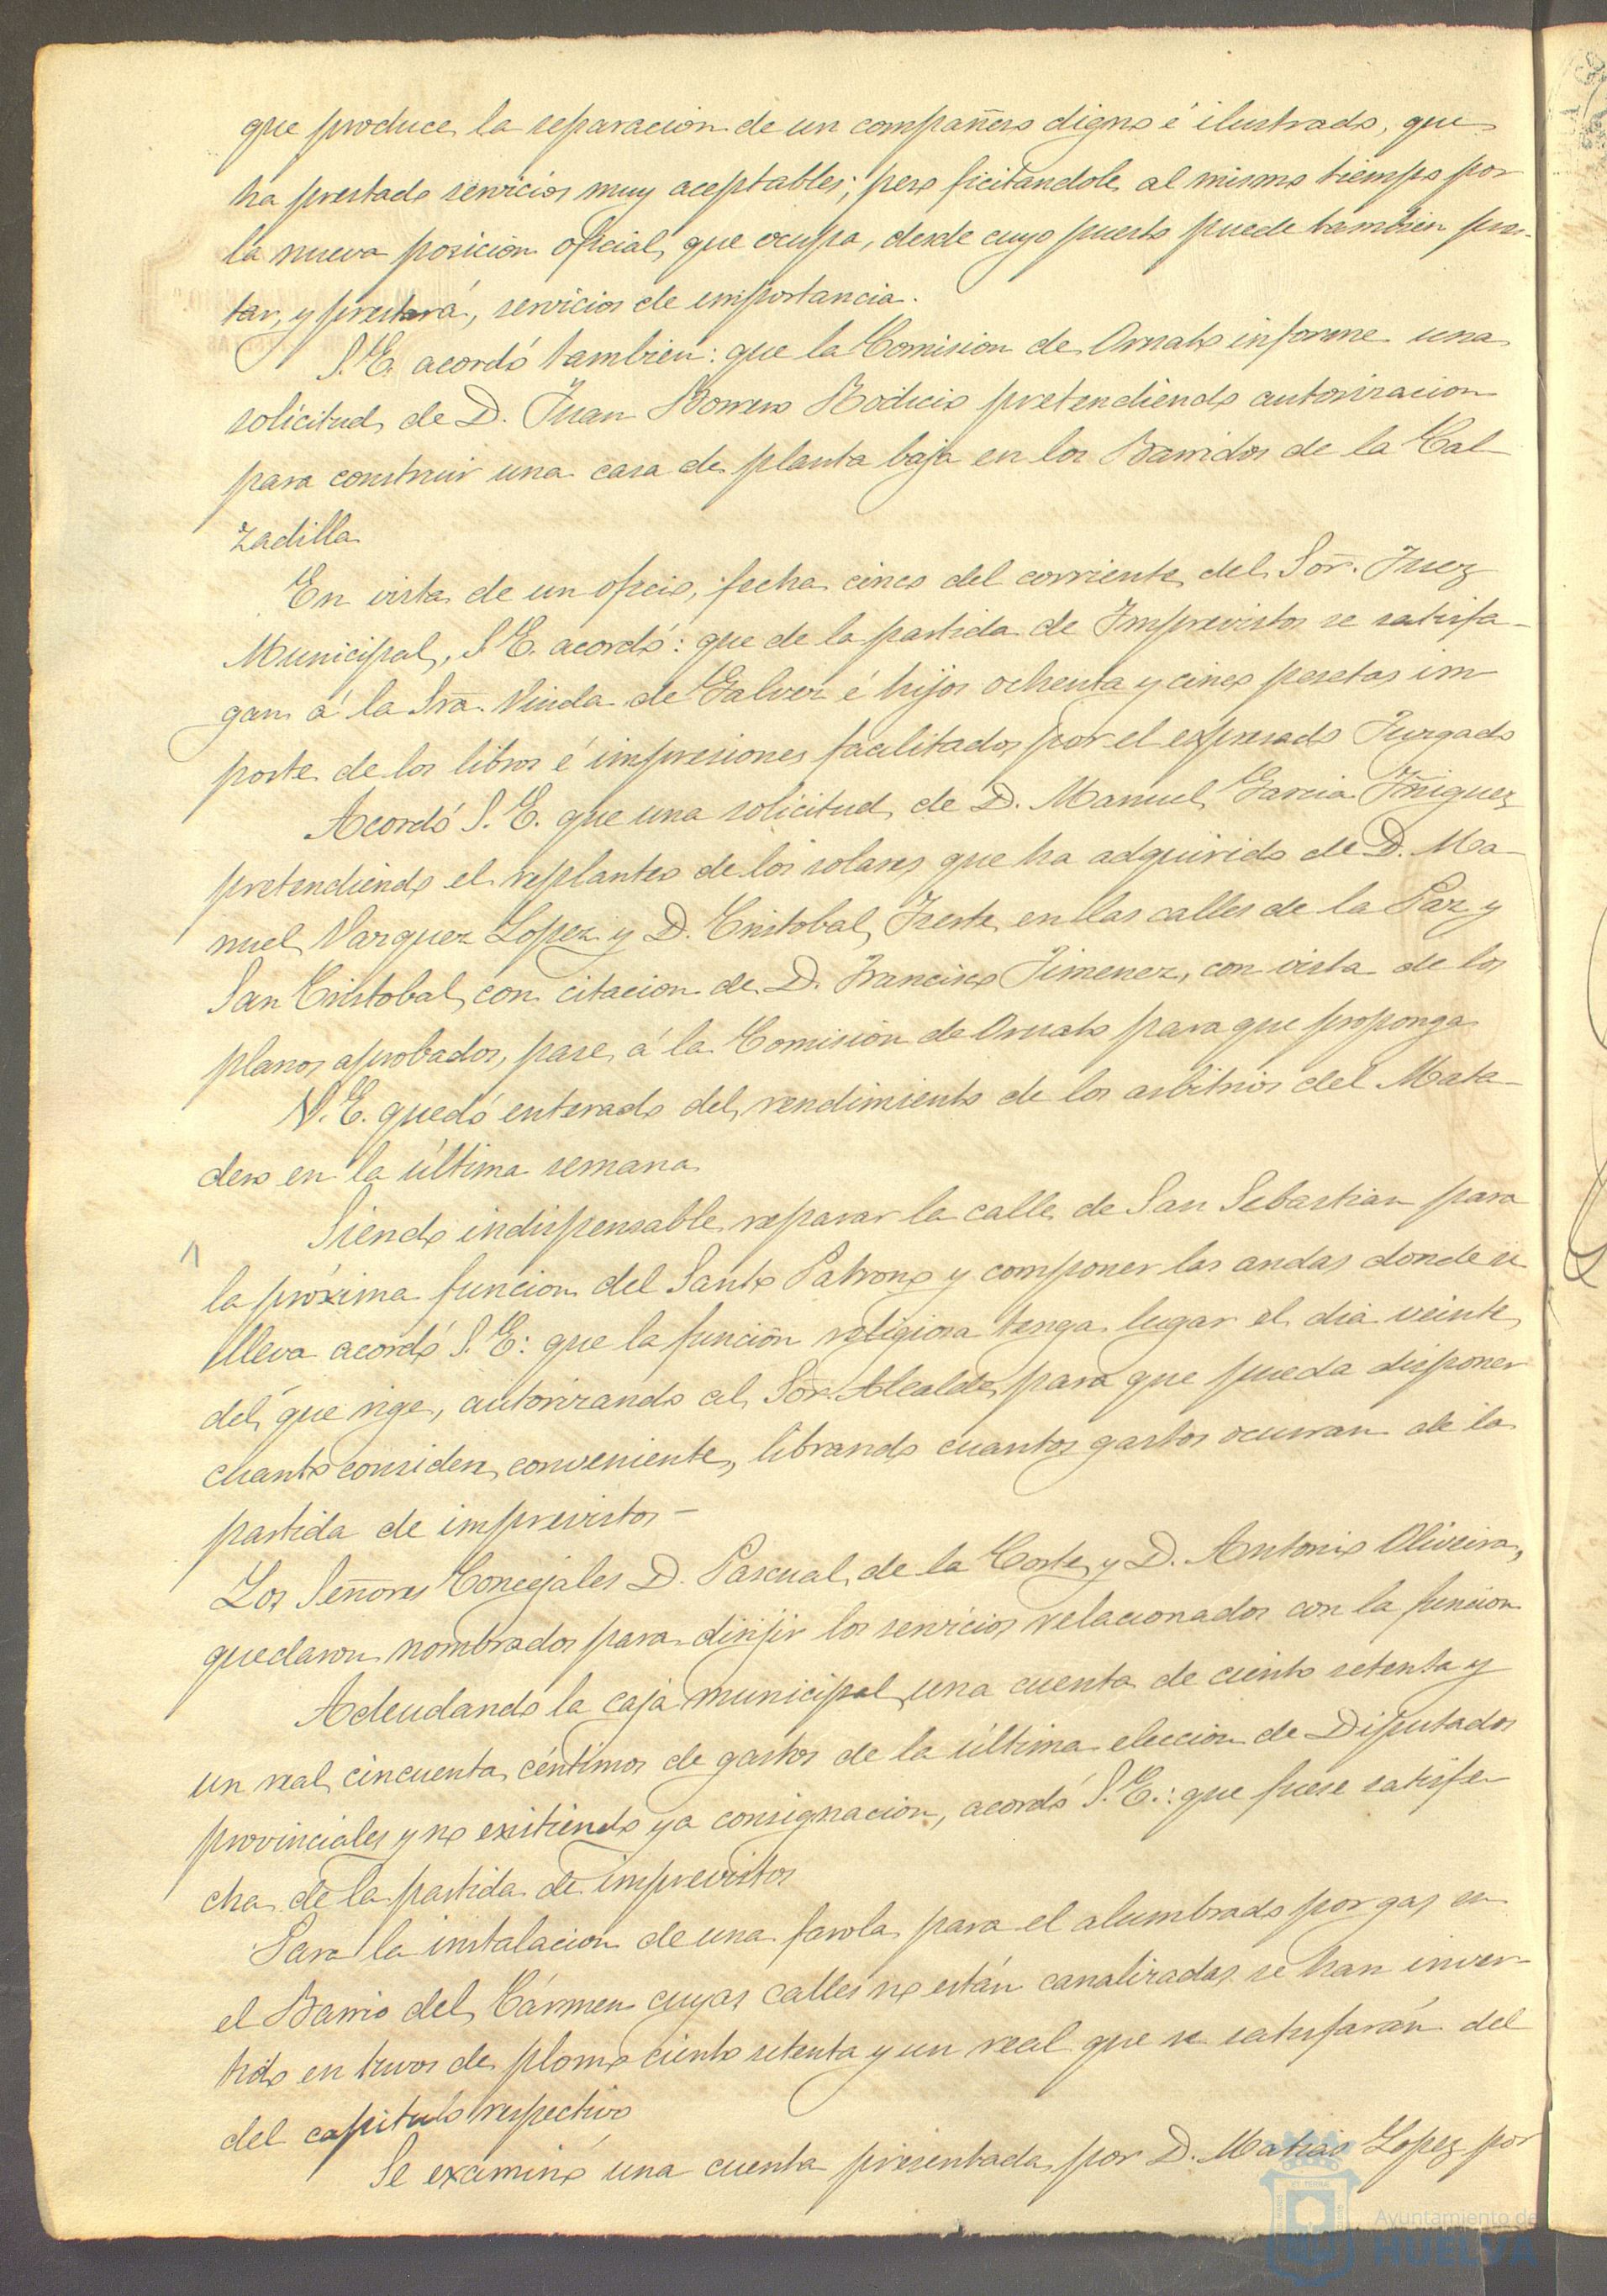 que produce la separacion de un compañero digno é ilustrado, que
ha prestado servicios muy aceptables; pero ficitandole al mismo tiempo por
la nueva posicion oficial que ocupa, desde cuyo puesto puede tambien pres-
tar, y prestará, servicios de importancia.
S. E. acordó tambien: que la Comision de Ornato informe una
solicitud de D. Juan Borrero Rodicio pretendiendo autorizacion
para construir una casa de planta baja en los Barridos de la Cal-
zadilla
En vista de un oficio, fecha cinco del corriente, del Sor. Juez
Municipal, S. E. acordó: que de la partida de Imprevistos se satisfa-
gan á la Sra. Viuda de Galvez é hijos ochenta y cinco pesetas im-
porte de los libros é impresiones facilitados por el expresado Juzgado
Acordó S. E. que una solicitud de D. Manuel Garcia Iñiguez
pretendiendo el replanteo de los solares que ha adquirido de D. Ma-
nuel Vazquez Lopez y D. Cristobal en las calles de la Paz y
San Cristobal, con citacion de D. Francisco Jimenez, con vista de los
planos aprobados, pase á la Comisión de Ornato para que proponga
V. E. quedó enterado del rendimiento de los arbitrios del Mata-
dero en la última semana
Siendo indispensable reparar la calle de San Sebastian para
la próxima funcion del Santo Patrono y componer las andas donde se
lleva acordó S. E: que la función religiosa tenga lugar el dia veinte
del que rige, autorizando al Sor. Alcalde para que pueda disponer
cuanto considere conveniente, librando cuantos gastos ocurran de la
partida de imprevistos-
Los Señores Concejales D. Pascual de la Corte y D. Antonio Oliveira,
quedaron nombrados para dirijir los servicios relacionados con la funcion
Adeudando la caja municipal una cuenta de ciento setenta y
un real cincuenta céntimos de gastos de la última eleccion de Diputados
provinciales y no existiendo ya consignacion, acordó S. E.: que fuese satisfe-
cha de la partida de imprevistos
Para la instalacion de una farola para el alumbrado por gas en
el Barrio del Cármen cuyas calles no están canalizadas se han inver-
tido en tuvos de plomo ciento setenta y un real que se satisfarán del
del capitulo respectivo
Se examinó una cuenta presentada por D. Matias Lopez por
Ayuntamiento de
HUELVA